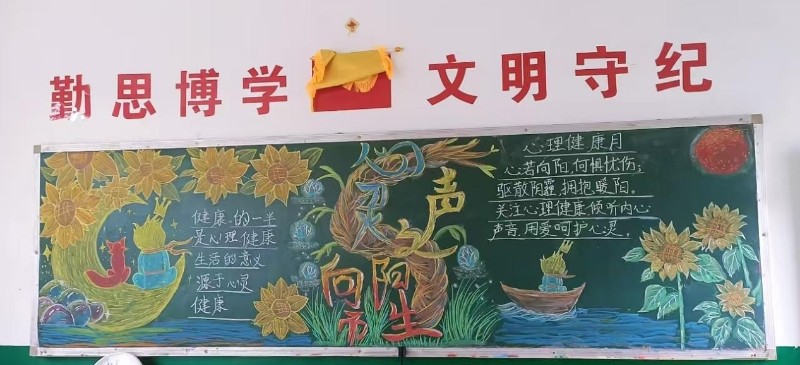 勤思博学 文明守纪
健康的一半
是心理健康
生活的意义
源于心灵
健康
心灵之声
向阳而生
心理健康月
心若向阳,何惧忧伤;
驱散阴霾,拥抱暖阳。
关注心理健康倾听内心
声音,用爱呵护心灵。